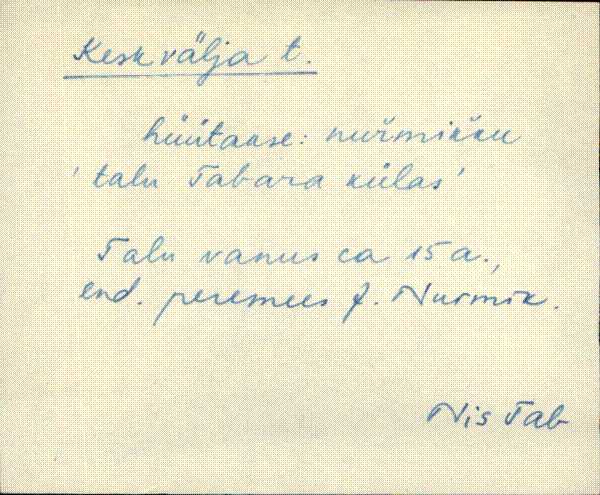 Keskvälja t.
hüütakse: nuřmikku
'talu Tabara külas'
Talu vanus ca 15 a.,
end. peremees J. Nurmik.
Nis Tab